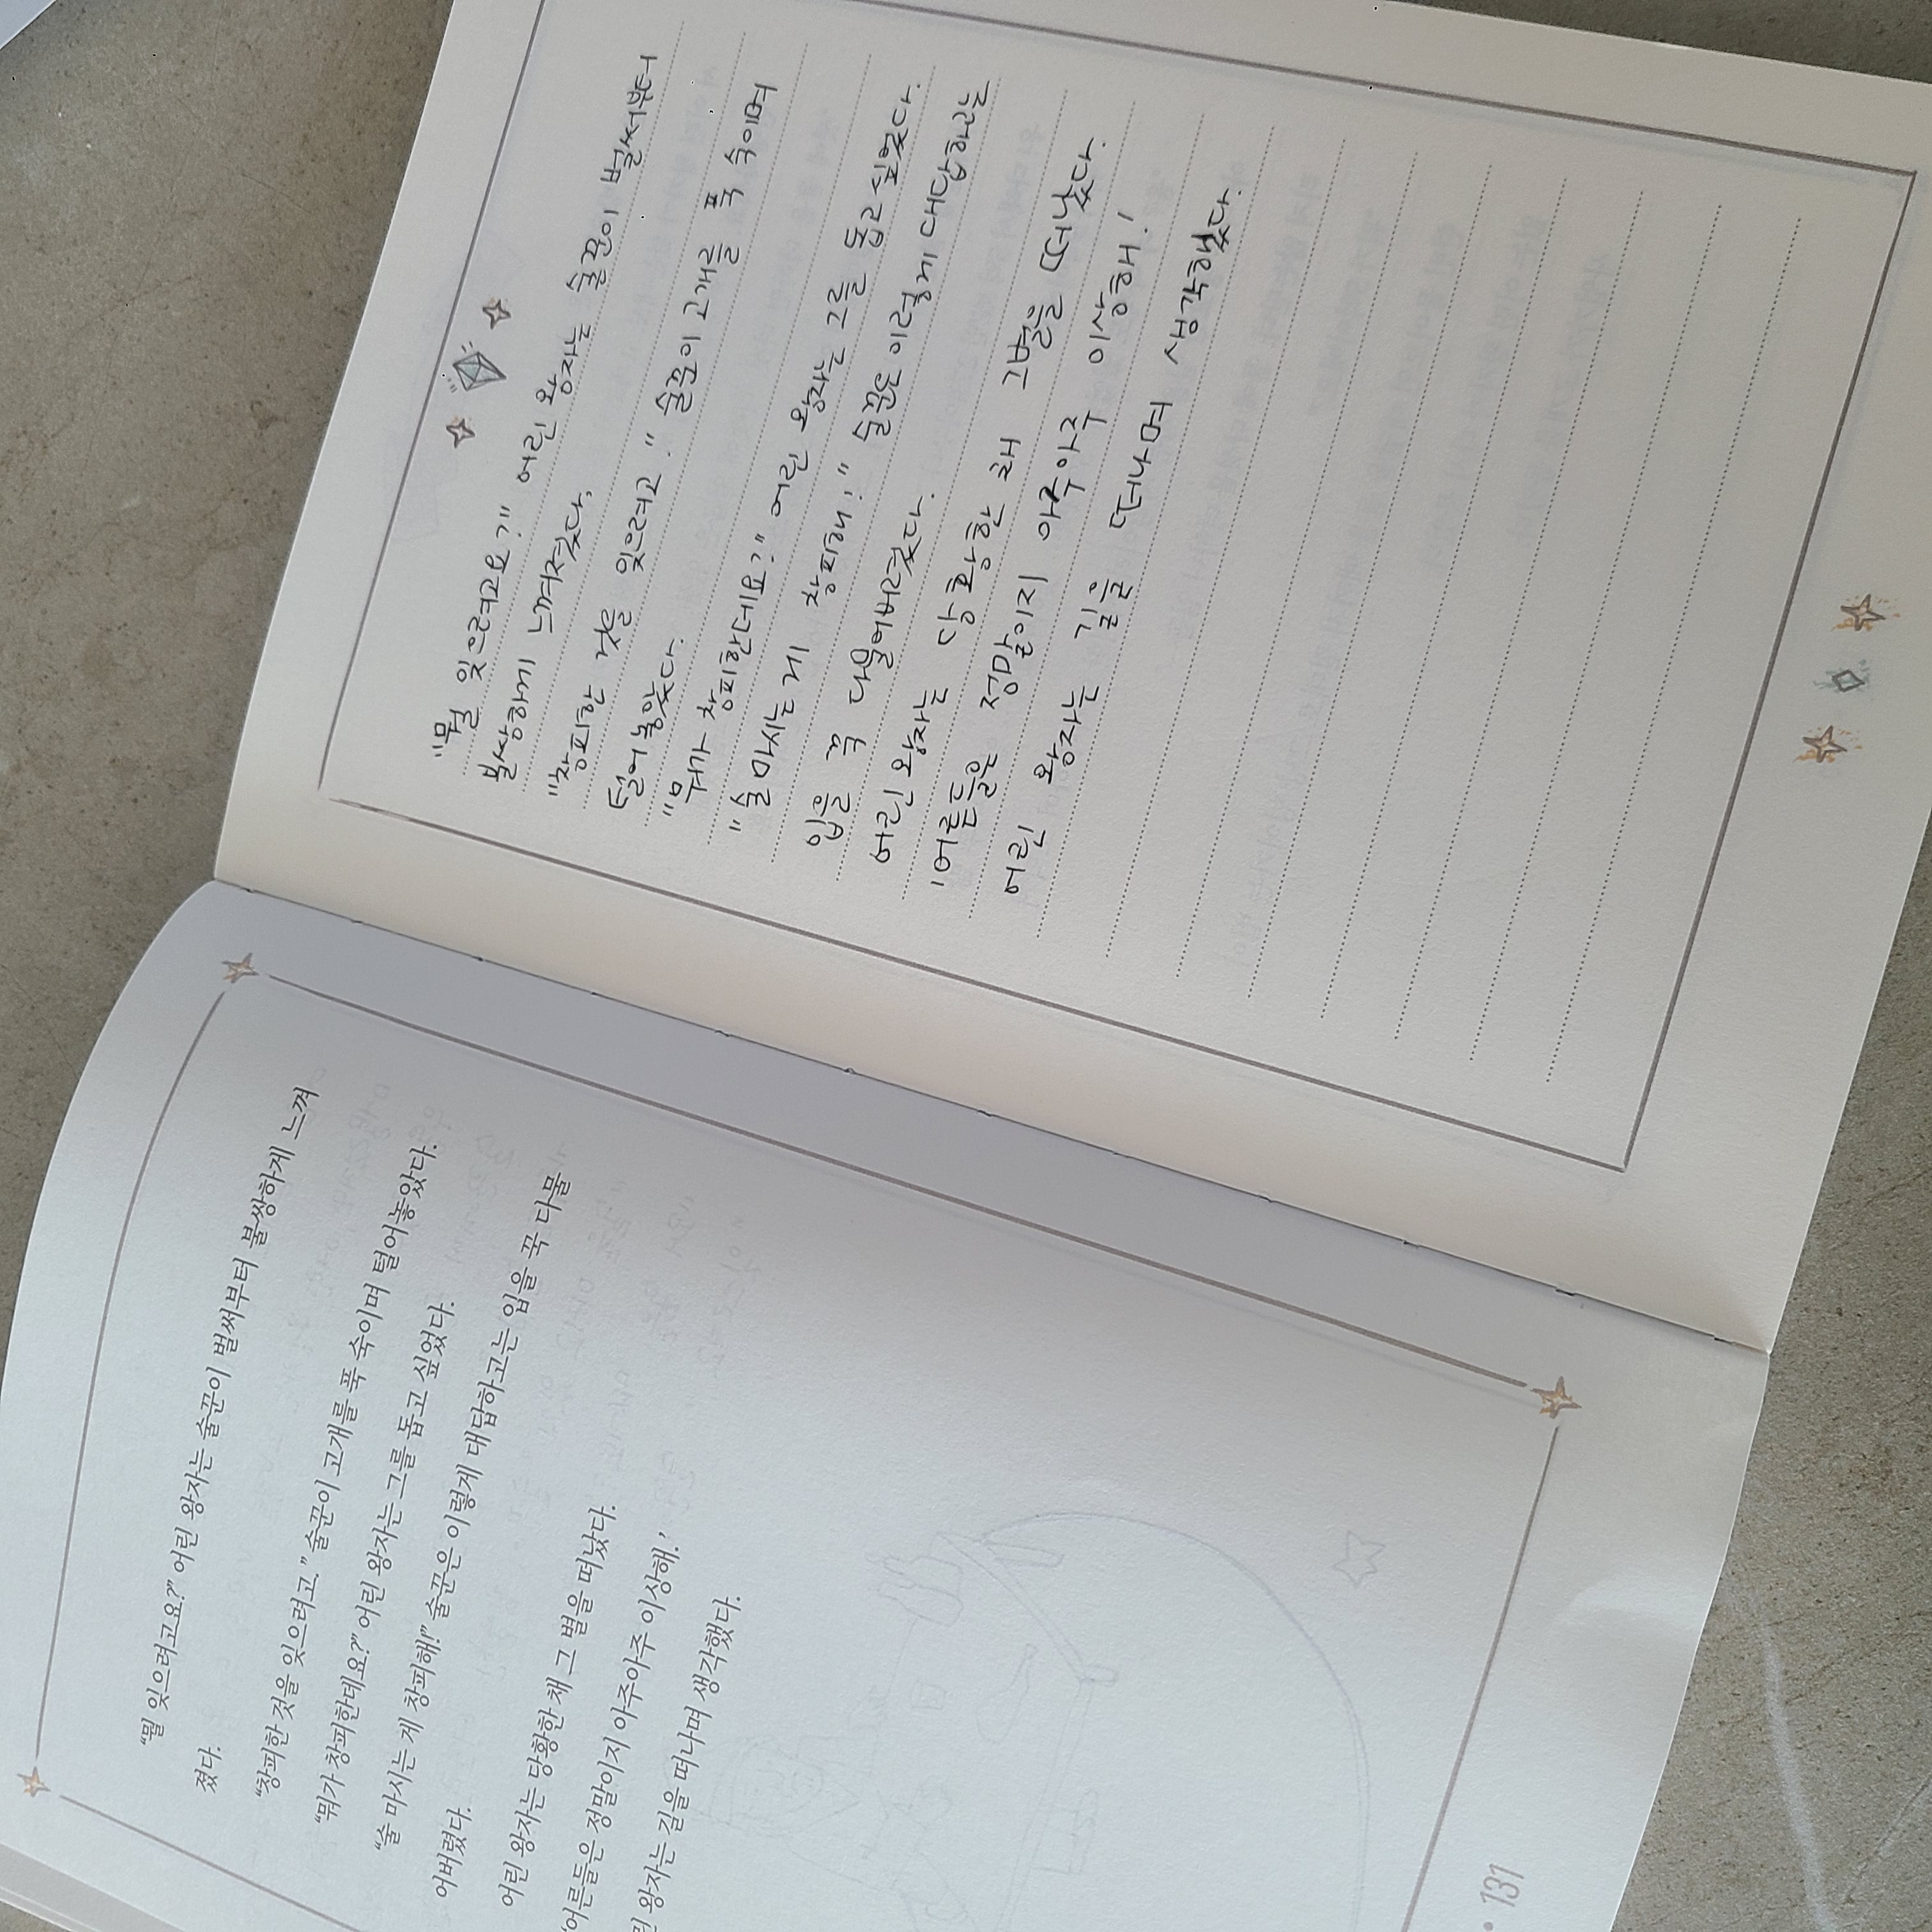 “뭘 잊으려고요?” 어린 왕자는 술꾼이 벌써부터 불쌍하게 느껴
졌다.
“창피한 것을 잊으려고.” 술꾼이 고개를 푹 숙이며 털어놓았다.
“뭐가 창피한데요?” 어린 왕자는 그를 돕고 싶었다.
“술 마시는 게 창피해!” 술꾼은 이렇게 대답하고는 입을 꾹 다물
어버렸다.
어린 왕자는 당황한 채 그 별을 떠났다.
‘어른들은 정말이지 아주아주 이상해.’
린 왕자는 길을 떠나며 생각했다.
• 131
"뭘 잊으려고요?" 어린 왕자는 술꾼이 벌써부터
불쌍하게 느껴졌다.
"창피한 것을 잊으려고." 술꾼이 고개를 푹 숙이며
털어놓았다.
"뭐가 창피한데요?" 어린 왕자는 그를 돕고 싶었다.
"술 마시는 게 창피해!" 술꾼은 이렇게 대답하곤
입을 꾹 다물어버렸다.
어린 왕자는 당황한 채 그 별을 떠났다.
'어른들은 정말이지 아주아주 이상해.'
어린 왕자는 길을 떠나며 생각했다.